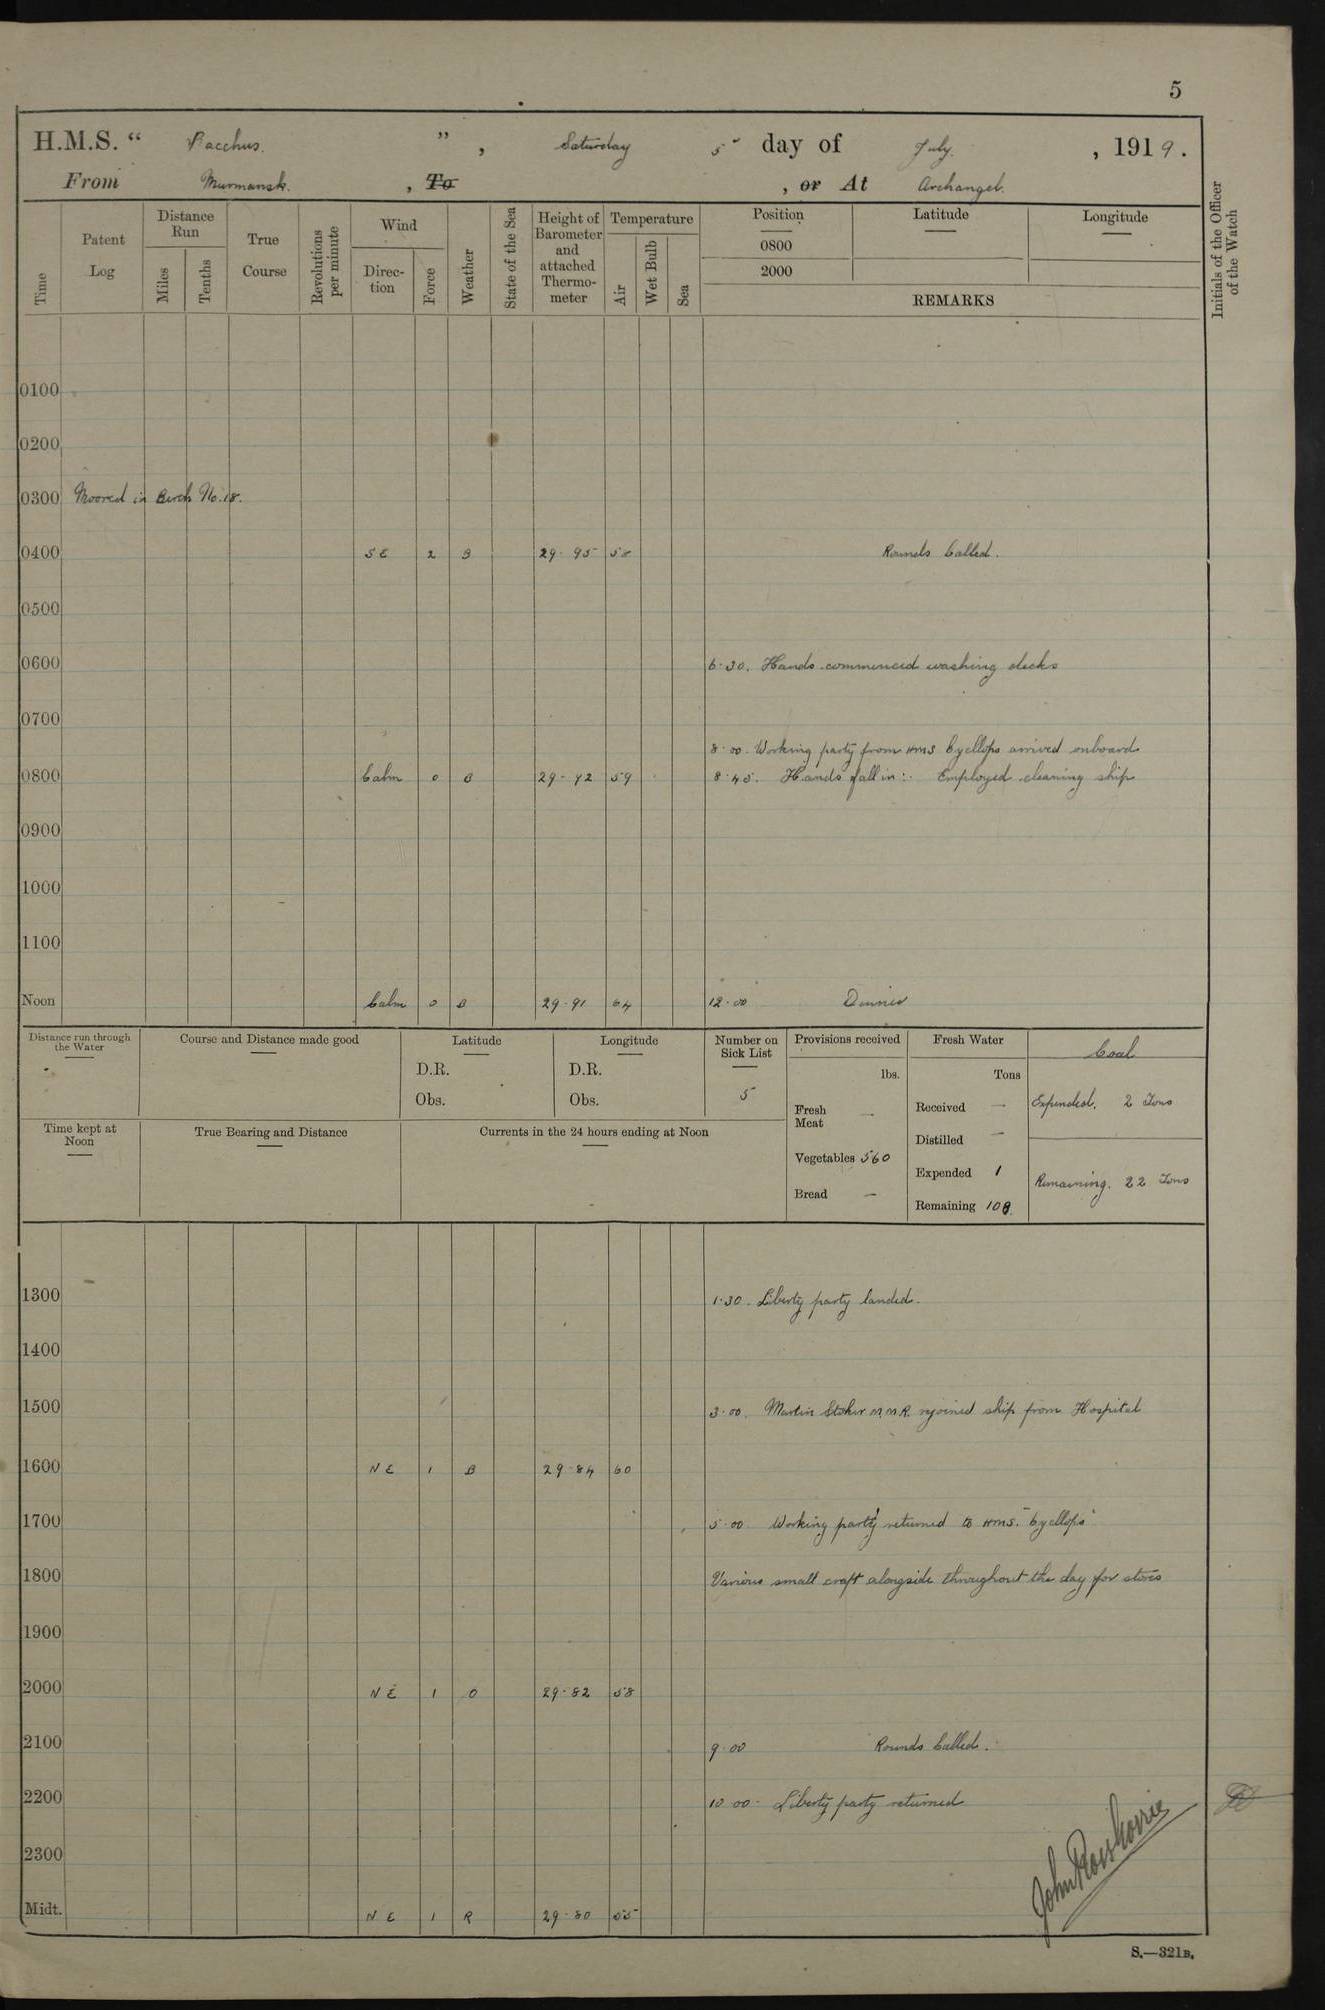 5
H.M.S. “ Bacchus. ” , Saturday 5 day of July. , 1919.
From Murmansk. , To , or At Archangel.
Time
Patent Log
Distance Run
Miles
Tenths
True Course
Revolutions per minute
Wind
Direc-tion
Force
Weather
State of the Sea
Height of Barometer and attached Thermo-meter
Temperature
Air
Wet Bulb
Sea
Position
0800
2000
Latitude
Longitude
REMARKS
Initials of the Officer of the Watch
0100
0200
0300 Moored in Berth No. 18.
0400 SE 2 B 29.95 58 Rounds Called.
0500
0600 6.30. Hands commenced washing decks
0700
8.00. Working party from HMS Cyclops arrived onboard
0800 Calm 0 B 29.92 59 8.45. Hands fall in:. Employed cleaning ship
0900
1000
1100
Noon Calm 0 B 29.91 64 12.00 Dinner
Distance run through the Water
Course and Distance made good
Latitude
D.R.
Obs.
Longitude
D.R.
Obs.
Number on Sick List
5
Provisions received
lbs.
Fresh Meat —
Vegetables 560
Bread —
Fresh Water
Tons
Received —
Distilled —
Expended 1
Remaining 108
Coal
Expended. 2 Tons
Remaining. 22 Tons
Time kept at Noon
True Bearing and Distance
Currents in the 24 hours ending at Noon
1300 1.30. Liberty party landed.
1400
1500 3.00. Martin Stoker M.M.R. rejoined ship from Hospital
1600 NE 1 B 29.84 60
1700 5.00 Working party returned to HMS. "Cyclops"
1800 Various small craft alongside throughout the day for stores
1900
2000 NE 1 O 29.82 58
2100 9.00 Rounds Called.
2200 10.00. Liberty party returned
2300
Midt. NE 1 R 29.80 55
S.—321B.